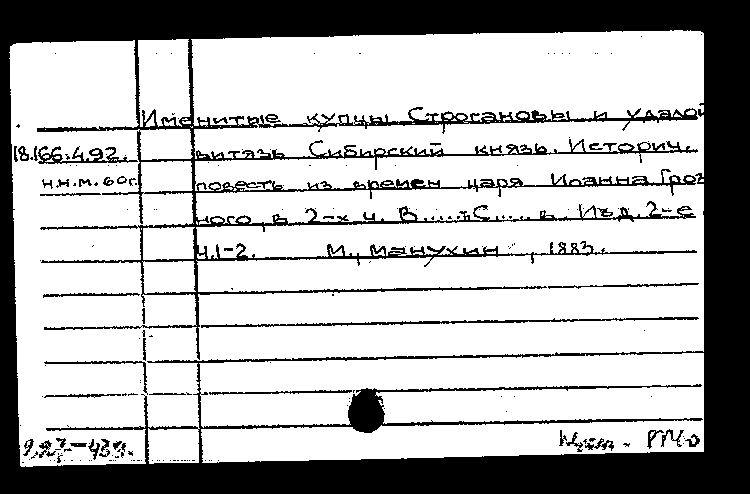 Именитые купцы Строгановы и удалой
18.166.4.92. витязь Сибирский князь. Историч.
н.н.м.60г. повесть из времен царя Иоанна Гроз
ного, в 2-х ч. В.....ъ С.....в. Изд. 2-е
ч.1-2. М., Манухин, 1883.